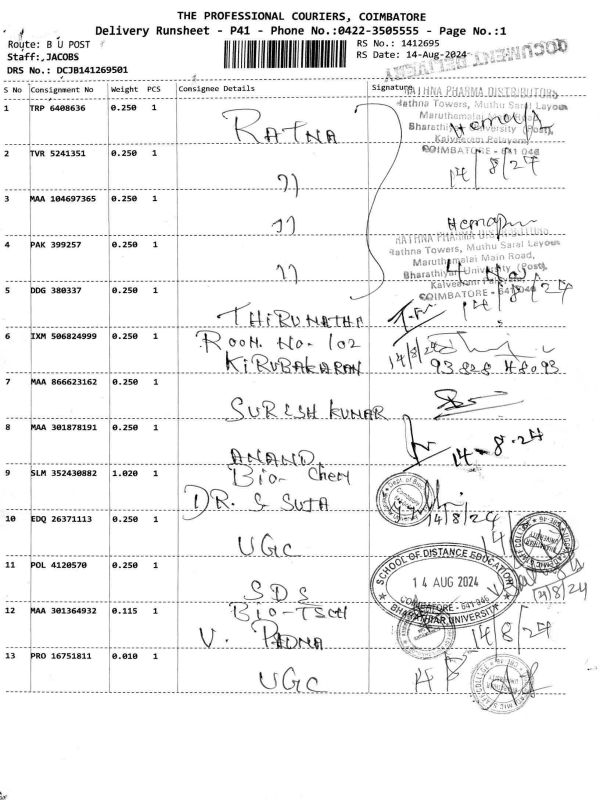 THE PROFESSIONAL COURIERS, COIMBATORE
Delivery Runsheet - P41 - Phone No.:0422-3505555 - Page No.:1
Route: B U POST
Staff:,JACOBS
DRS No.: DCJB141269501
RS No.: 1412695
RS Date: 14-Aug-2024
DOCUMENT DELIVERY
S No Consignment No Weight PCS Consignee Details Signature
RATHNA PHARMA DISTRIBUTORS
Rathna Towers, Muthu Sarai Layout
Maruthamalai Main Road,
Bharathiyar University (Post),
Kalveeram Palayam
COIMBATORE - 641 046
1 TRP 6408636 0.250 1 RATNA
14/8/24
2 TVR 5241351 0.250 1 "
3 MAA 104697365 0.250 1 "
RATHNA PHARMA DISTRIBUTORS
Rathna Towers, Muthu Sarai Layout
Maruthamalai Main Road,
Bharathiyar University (Post),
Kalveeram Palayam
COIMBATORE - 641 046
4 PAK 399257 0.250 1 "
14/8/24
5 DDG 380337 0.250 1 THIRUNATHA
6 IXM 506824999 0.250 1 ROOM. No. 102
KIRUBAKARAN
14/8/24
7 MAA 866623162 0.250 1 SURESH KUMAR
8 MAA 301878191 0.250 1 ANAND
14-8-24
9 SLM 352430882 1.020 1 Bio- Chem
DR. S SUJA
14/8/24
10 EDQ 26371113 0.250 1 UGC
11 POL 4120570 0.250 1 SDS
SCHOOL OF DISTANCE EDUCATION
14 AUG 2024
COIMBATORE - 641 046
BHARATHIAR UNIVERSITY
14/8/24
12 MAA 301364932 0.115 1 BIO-TECH
V. PADMA
14/8/24
13 PRO 16751811 0.010 1 UGC